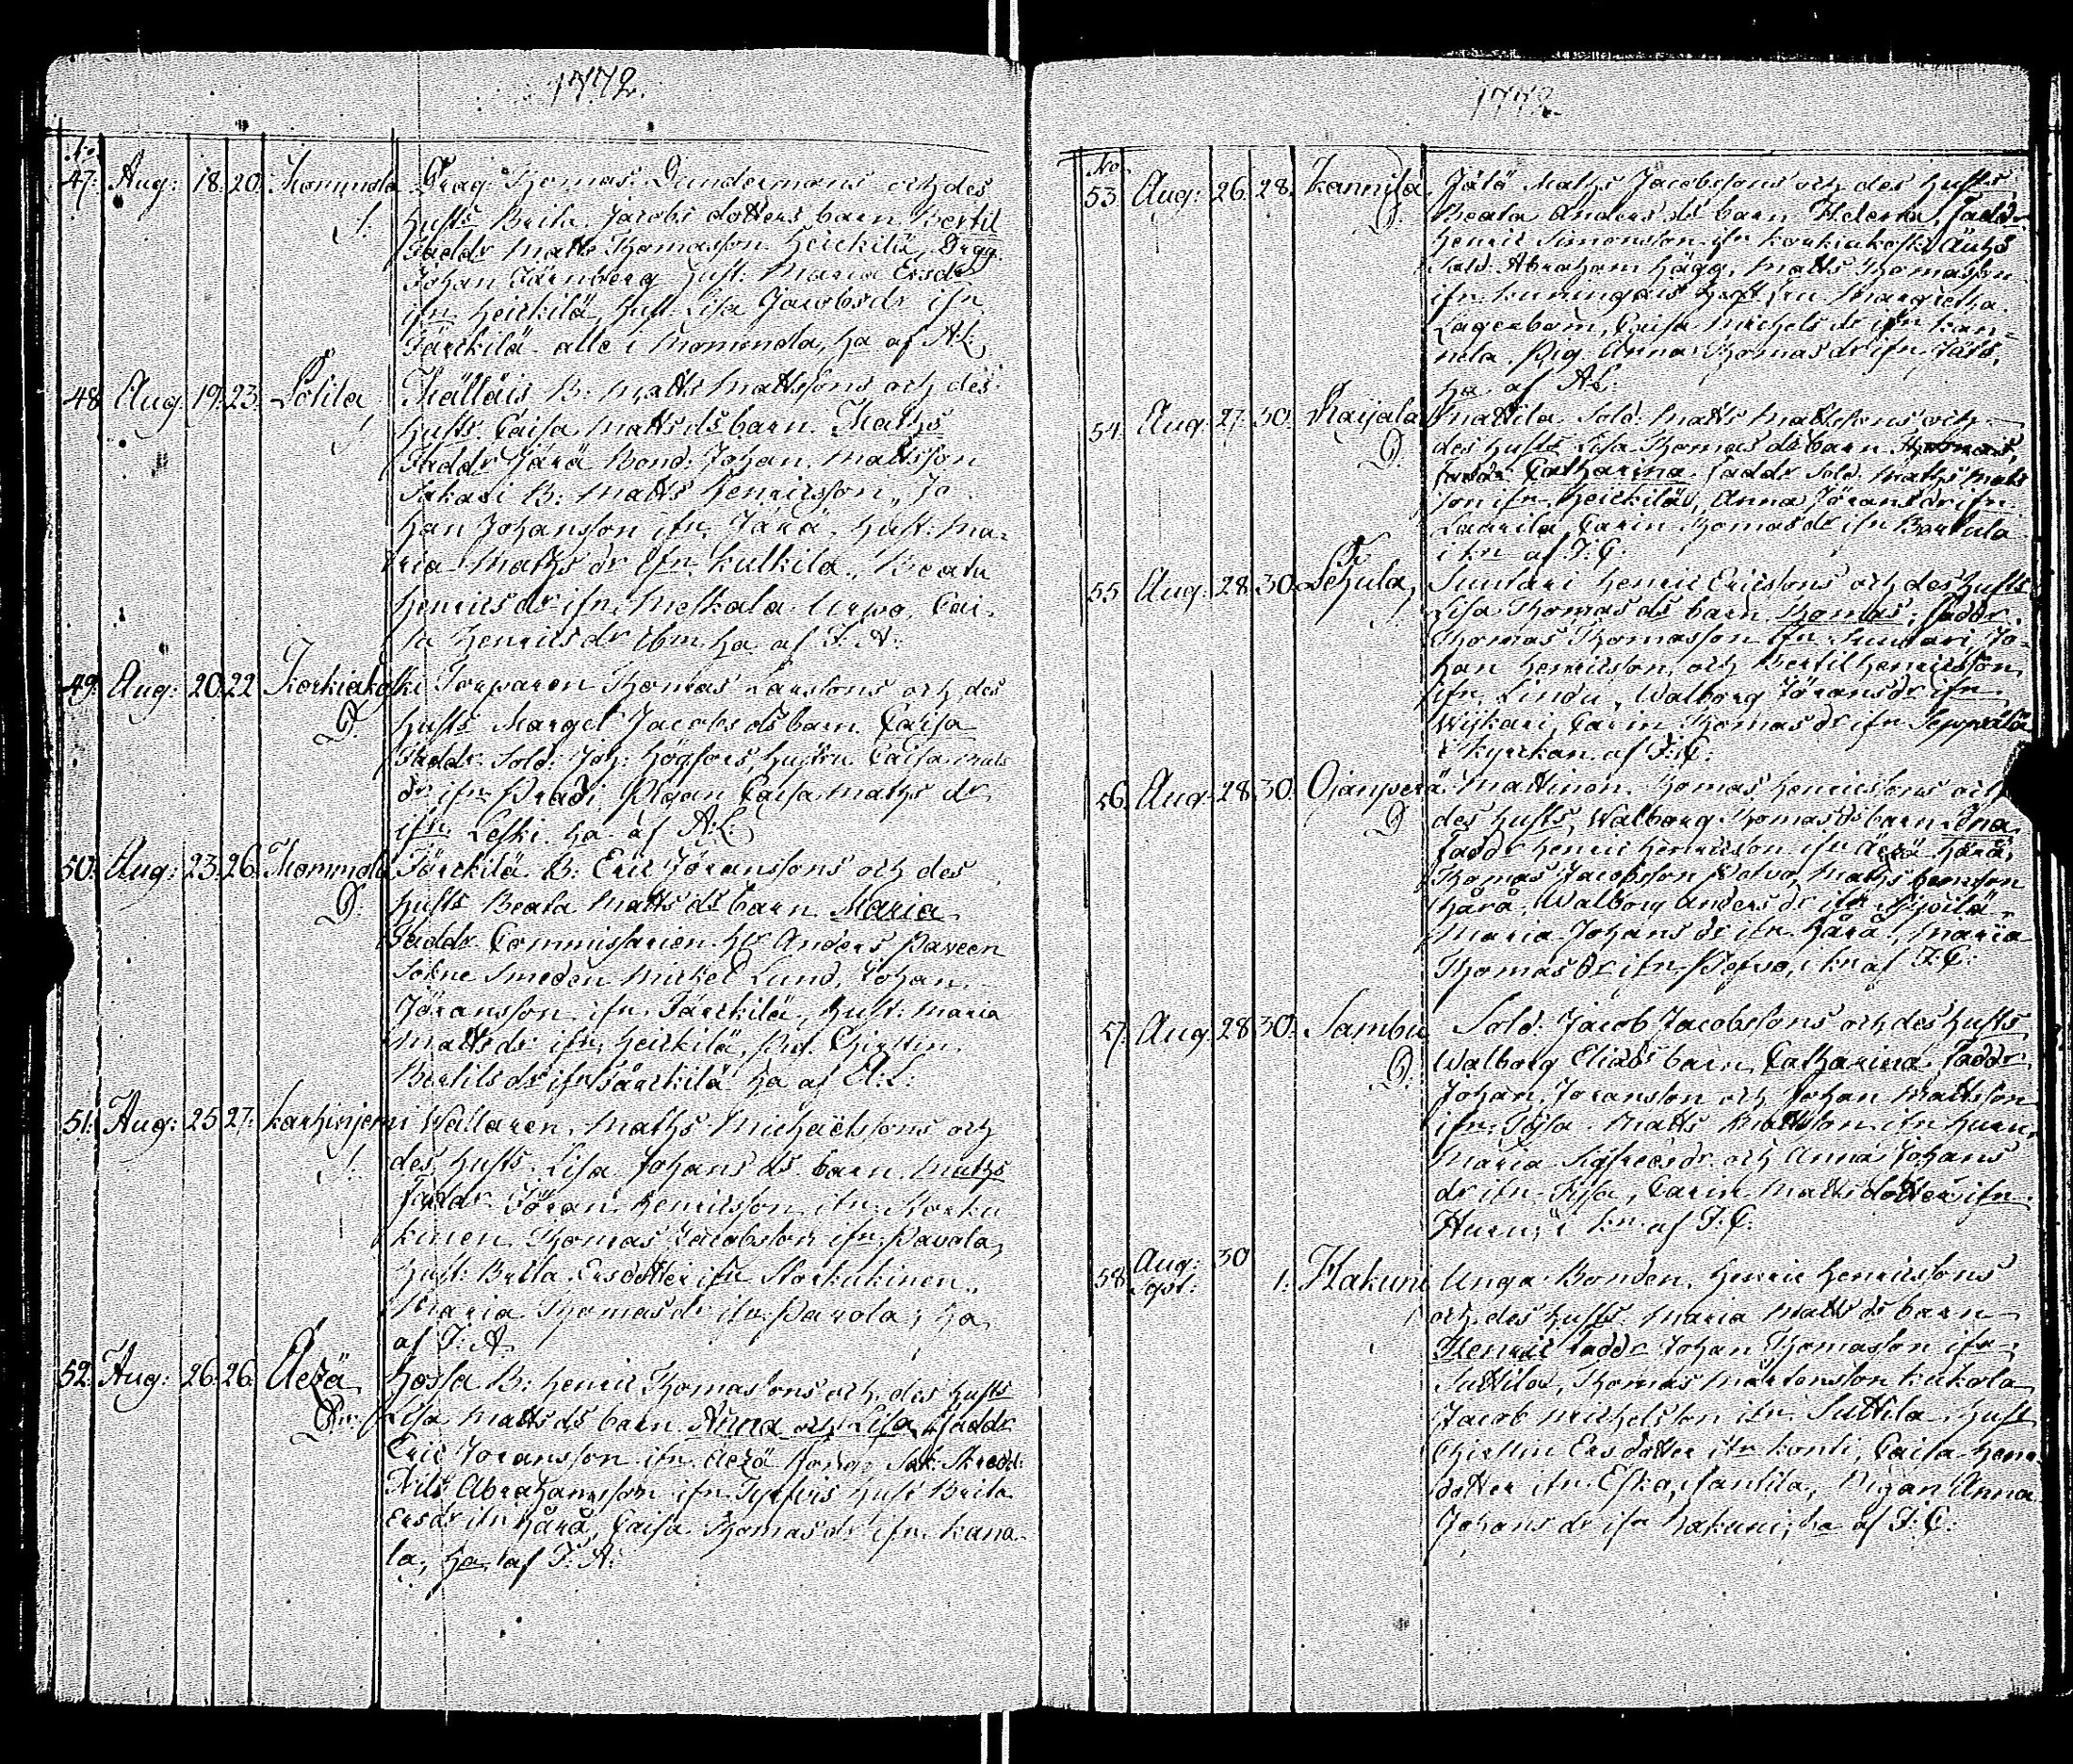 1772.
No
47. Aug: 18. 20. Mommola Drag: Thomas Dundermans och des
S. hust Brita Jacobs dotters barn Bertil
Faddr Matts Thomasson Heickilä, Drag
Johan Tärnberg hust: Maria Ersdr
ifn Heickilä, hust Lisa Jacobsdr ifn
Järckilä alle i Mommola, ha af A.L.
48 Aug. 19. 23. Sälläis B: Matts Mattssons och des
S. husts Caisa Matts ds barn Maths
Faddr Järä Bond. Johan Mattsson
Sakari B: Matts Henricsson, Jo
han Johansson ifn Järä, hust: Ma-
ria Maths dr ifn Kulkila, Beata
Henrics dr ifn Meskala, Cai-
sa Henrics dr ibm ha af J. A:
49. Aug: 20. 22 Korkiakoski Torparen Thomas Larssons och des
D. husts Marget Jacobs ds barn Caisa
Faddr. Sold: Joh: Högfors, hustru Caisa Mats
dr ifn Pigan Caisa Maths dr
ifn Leski. ha af A:L:
50. Aug: 23. 26. Mommola Järckilä B: Eric Jöranssons och des
D. husts Beata Matts ds barn Maria
Faddr Commissarien Hr Anders Paveen
Sokne Smeden Michel Lund, Johan
Jöransson ifn Järckilä, hust: Maria
Matts dr ifn Heickilä, Chirstin
Bertils dr ifn Järckilä ha af A:L:
51. Aug: 25. 27. Karhinjemi Wallaren Maths Michaelssons och
S. des husts Lisa Johans ds barn Maths
faddr Jöran Henricsson ifn Storku
kinen Thomas Jacobsson ifn Pavola,
hust: Brita Ersdotter ifn Storkukinen,
Maria Thomasdr ifn Pavola, ha
af J: A.
52. Aug: 26. 26. Äezä Hossa B: Henric Thomassons och des husts
Lisa Matts ds barn Anna och Lisa, faddr
Eric Joransson ifn Äezä Sok: Skredd:
Nils Abrahamsson ifn hust Brita
Ersdr ifn Härä, Caisa Thomasdr ifn Kana-
la, ha af J: A:
1772.
No.
53. Aug: 26. 28. Kannila Jälö Maths Jacobssons och des husts
D. Beata Anders ds barn Helena, Faddr
Henric Simonsson ifn Korkiakoski
Sold. Abraham Hägg, Matts Thomasson
ifn Kuningais Margretha
Lagerbom, Caisa Michels dr ifn Kan-
nila. Pig. Anna Thomas dr ifn Jälö,
ha af A.L:
54. Aug: 27. 30. Raijala Mattila Sold: Matts Mattssons och
D. des husts Lisa Thomas ds barn
Catharina faddr Sold. Maths Mats
son ifn Heickilä, Anna Jörans dr ifn
Laurila Carin Thomas dr ifn
i kn af J: C:
55. Aug: 28. 30. Suntari Henric Ericssons och des husts
S. Lisa Thomas ds barn Thomas, faddr
Thomas Thomasson ifn Suntari, Jo-
han Henricsson och Bertil Henricsson
ifn Lindu, Walborg Jörans dr ifn
Wiskari, Carin Thomas dr ifn Seppälä
i kyrckan af J: C:
56. Aug: 28. 30. Ojanperä Mattinen Thomas Henricssons och
D. des husts, Walborg Thomas ds barn Lena
faddr Henric Henricsson ifn Äezä Härä,
Thomas Jacobsson Maths
Härä, Walborg Anders dr ifn
Maria Johans dr ifn Härä, Maria
Thomas dr ifn i kn af J: C:
57. Aug: 28. 30. Sambu Sold: Jacob Jacobssons och des husts
D. Walborg Elias ds barn Catharina faddr
Johan Joransson och Johan Mattsson
ifn Matts Mattsson ifn Huru,
Maria Sigfreds dr och Anna Johans
dr ifn Carin Matts dotter ifn
Huru, i kn: af J: C:
58. Aug: 30 Sept: 1. Hakuni Unga Bonden Henric Henricssons
och des husts Maria Matts ds barn
Henric faddr Johan Thomasson ifn
Suttila, Thomas Mårtensson Kukola,
Jacob Michelsson ifn Suttila, hust
Chirstin Ersdotter ifn Konti, Caisa Henr
dotter ifn Esko, Pigan Anna
Johans dr ifn Hakuni, ha af J: C: